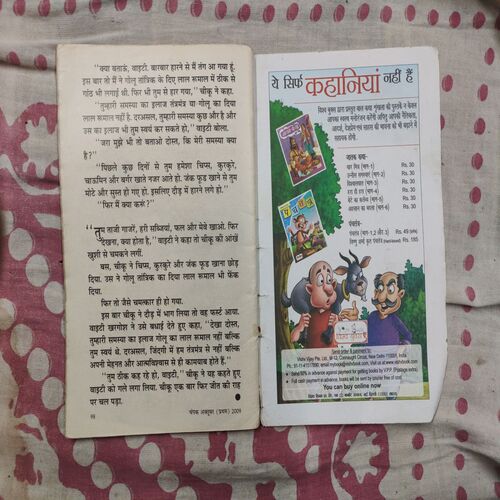 “क्या बताऊं, वाइटी. बारबार हारने से मैं तंग आ गया हूं.
इस बार तो मैं ने गोलू तांत्रिक के दिए लाल रूमाल में ठीक से
गांठ भी लगाई थी. फिर भी तुम से हार गया,” चीकू ने कहा.
“तुम्हारी समस्या का इलाज तंत्रमंत्र या गोलू का दिया
लाल रूमाल नहीं है. दरअसल, तुम्हारी समस्या कुछ और है और
उस का इलाज भी तुम स्वयं कर सकते हो,” वाइटी बोला.
“जरा मुझे भी तो बताओ कि मेरी समस्या क्या
है?”
“पिछले कुछ दिनों से तुम हमेशा चिप्स, कुरकुरे,
चाऊमिन और बर्गर खाते नजर आते हो. जंक फूड खाने से तुम
मोटे और सुस्त हो गए हो. इसलिए दौड़ में हारने लगे हो.”
“फिर मैं क्या करूं?”
“तुम ताजी गाजरें, हरी सब्जियां, फल और मेवे खाओ. फिर
देखना, क्या होता है,” वाइटी ने कहा तो चीकू की आंखें
खुशी से चमकने लगीं.
बस, चीकू ने चिप्स, कुरकुरे और जंक फूड खाना छोड़
दिया. उस ने गोलू तांत्रिक का दिया लाल रूमाल भी फेंक
दिया.
फिर तो जैसे चमत्कार ही हो गया.
इस बार चीकू ने दौड़ में भाग लिया तो वह फर्स्ट आया.
वाइटी खरगोश ने उसे बधाई देते हुए कहा, “देखा दोस्त,
तुम्हारी समस्या का इलाज गोलू का लाल रूमाल नहीं बल्कि
तुम स्वयं थे. दरअसल, जिंदगी में हम तंत्रमंत्र से नहीं बल्कि
अपनी मेहनत और आत्मविश्वास से ही कामयाब होते हैं.”
“तुम ठीक कह रहे हो, वाइटी,” चीकू ने यह कहते हुए
वाइटी को गले लगा लिया. चीकू एक बार फिर जीत की राह
पर चल पड़ा.
चंपक अक्तूबर (प्रथम) 2009
ये सिर्फ कहानियां नहीं हैं
विश्व बुक्स द्वारा प्रस्तुत बाल कथा शृंखला की पुस्तकें न केवल
आपका स्वस्थ मनोरंजन करेंगी अपितु आपकी नैतिकता,
आदर्श, देशप्रेम एवं साहस की भावना को भी बढ़ाने में
सहायक होंगी.
जातक कथा-
Rs. 30
Rs. 30
Rs. 30
Rs. 30
Rs. 30
Rs. 30
पंचतंत्र-
पंचतंत्र (भाग-1,2 और 3) Rs. 49 (प्रत्येक)
Rs. 195
Send order & payment to:
Vishv Vijay Pvt. Ltd., M-12, Connaught Circus, New Delhi-110001, India.
You can buy online now